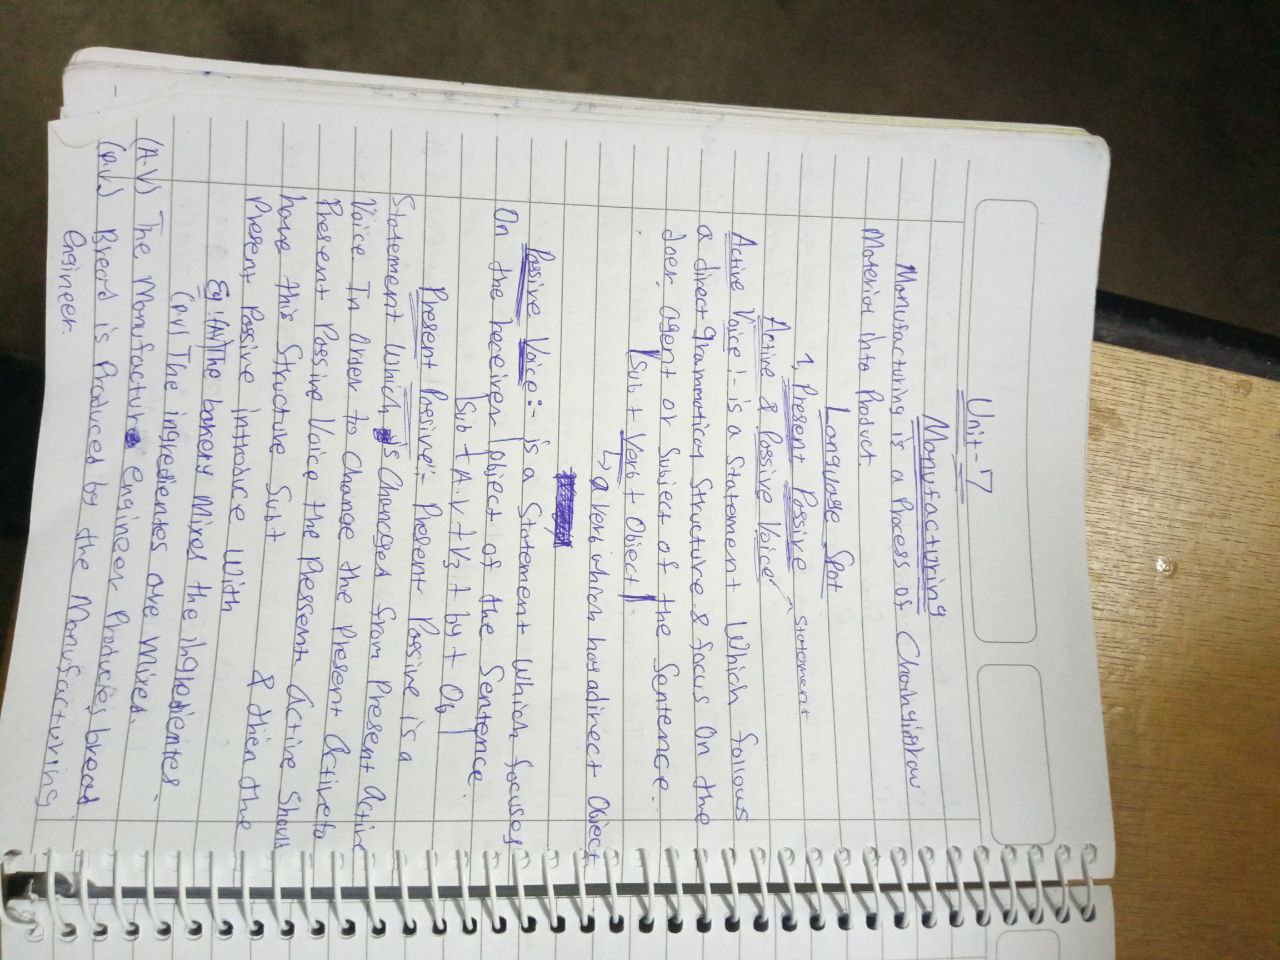 Unit - 7
Manufacturing
Manufacturing is a Process of Changing Raw
Material into Product.
Language Spot
1, Present Passive statement
Active & Passive Voice
Active Voice :- is a Statement Which follows
a direct grammatical Structure & focus On the
doer, agent or Subject of the Sentence.
Sub + Verb + Object
↳ a verb which has a direct Object
Passive Voice :- is a Statement Which focuses
On the receiver Object of the Sentence.
Sub + A.V + V3 + by + Obj
Present Passive :- Present Passive is a
Statement Which is Changed from Present Active
Voice In order to Change the Present Active to
Present Passive Voice the Pressent Active Should
have this Structure Sub + & then the
Present Passive introduce With
Eg: (AV) The bakery Mixes the ingredientes
(P.V) The ingredientes are Mixed.
(A.V) The Manufacture engineer Producies bread
(P.V) Bread is Produced by the Manufacturing
engineer.